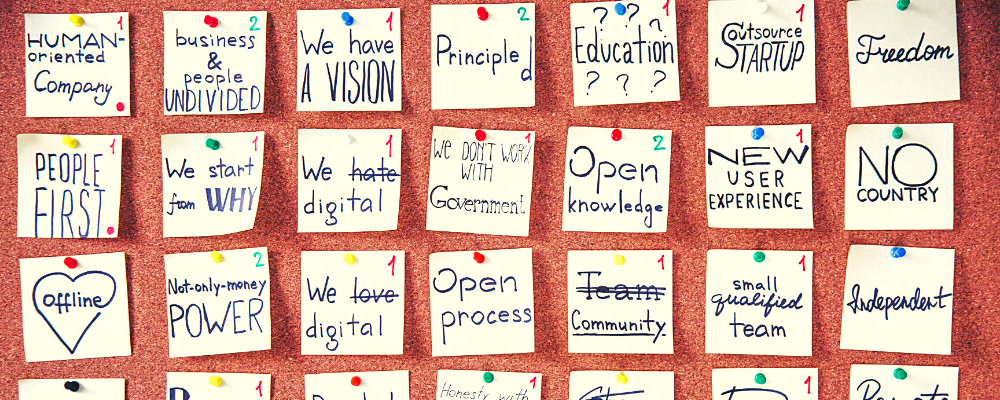 HUMAN-
oriented
Company
2
business
&
people
UNDIVIDED
1
We have
A VISION
2
Principled
1
? ?
Education
? ? ?
1
Outsource
STARTUP
Freedom
1
PEOPLE
FIRST
1
We start
from WHY
1
We hate
digital
1
We DON'T WORK
WITH
Government
2
Open
knowledge
1
NEW
USER
EXPERIENCE
NO
COUNTRY
offline
2
Not-only-money
POWER
1
We love
digital
Open
process
1
Team
Community
1
small
qualified
team
Independent
1
1
Honesty with
1
1